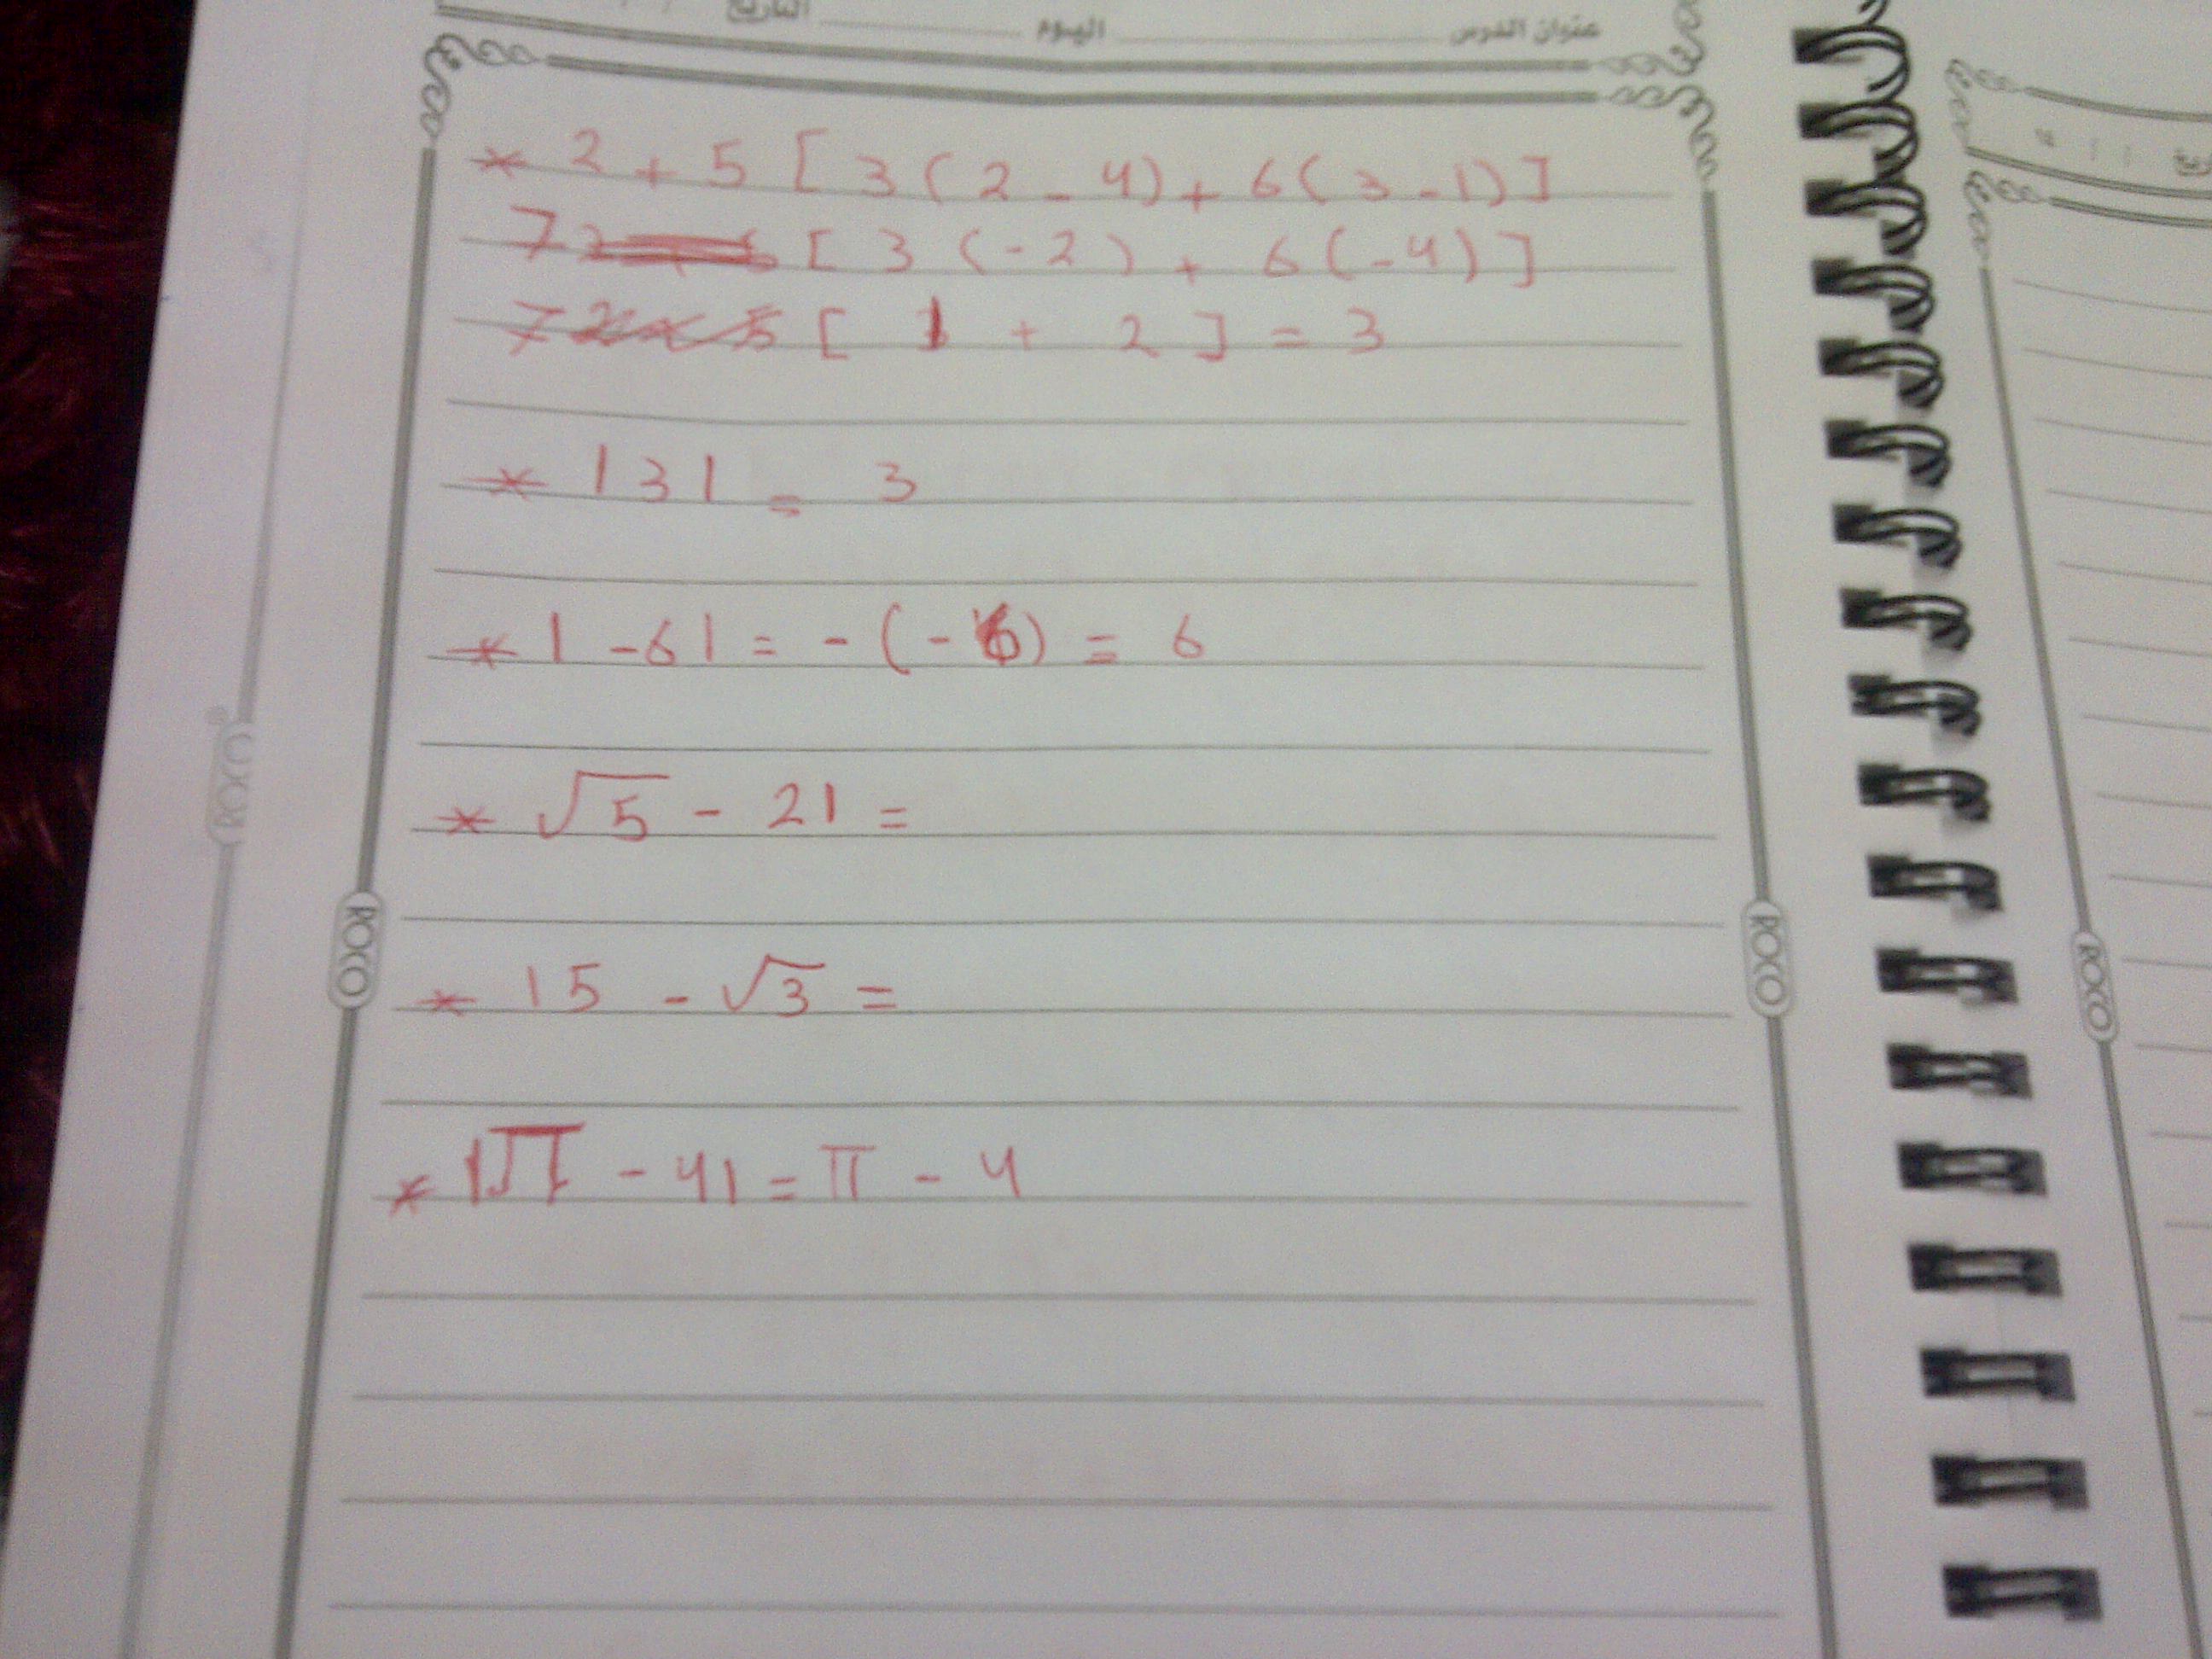 التاريخ اليوم عنوان الدرس
* 2 + 5 [ 3 ( 2 - 4) + 6 ( 3 - 1) ]
7 [ 3 ( - 2 ) + 6 ( - 4 ) ]
7 [ 1 + 2 ] = 3
* | 3 | = 3
* | - 6 | = - ( - 6 ) = 6
* √5 - 2 | =
* | 5 - √3 =
* | π - 4 | = π - 4
ROCO
ROCO
ROCO
ROCO